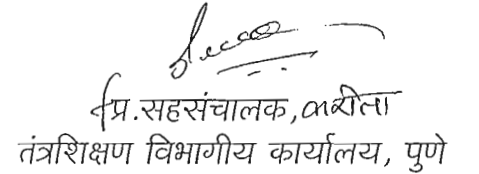 प्र. सहसंचालक, करीता
तंत्रशिक्षण विभागीय कार्यालय, पुणे